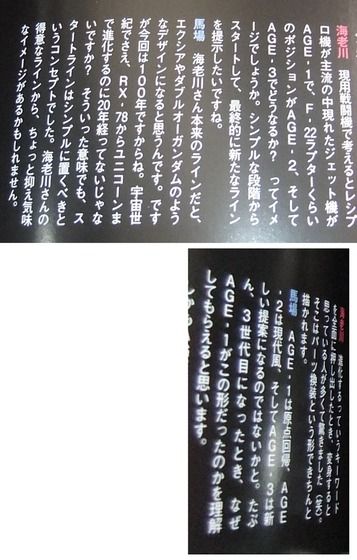 海老川　現用戦闘機で考えるとレシプ
ロ機が主流の中現れたジェット機が
AGE-1で、F-22ラプターくらい
のポジションがAGE-2、そして
AGE-3でどうなるか？　ってイメ
ージでしょうか。シンプルな段階から
スタートして、最終的に新たなライン
を提示したいですね。
馬場　海老川さん本来のラインだと、
エクシアやダブルオーガンダムのよう
なデザインになると思うんです。です
が今回は100年ですからね。宇宙世
紀でさえ、RX-78からユニコーンま
で進化するのに20年経ってないじゃな
いですか？　そういった意味でも、ス
タートラインはシンプルに置くべきと
いうコンセプトでした。海老川さんの
得意なラインから、ちょっと抑え気味
なイメージがあるかもしれません。
海老川　進化するっていうキーワード
を全面に押し出したとき、変身すると
思っている人が多くて驚きました（笑）。
そこはパーツ換装という形できちんと
描かれます。
馬場　AGE-1は原点回帰、AGE
-2は現代風、そしてAGE-3は新
しい提案になるのではないかと。たぶ
ん、3世代目になったとき、なぜ
AGE-1がこの形だったのかを理解
してもらえると思います。